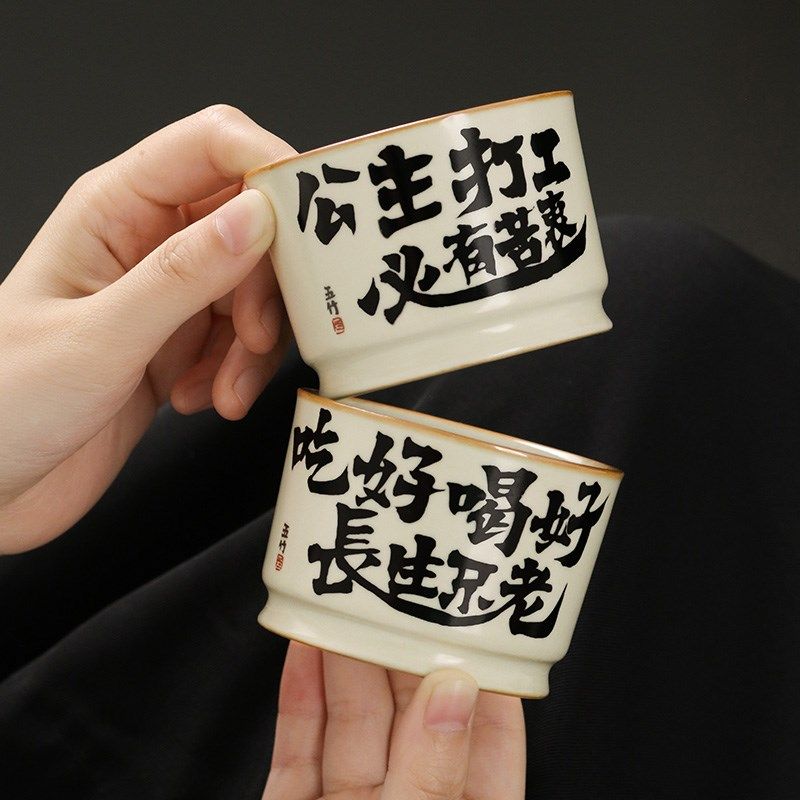 公主打工
必有苦衷
玉竹
吃好喝好
長生不老
玉竹